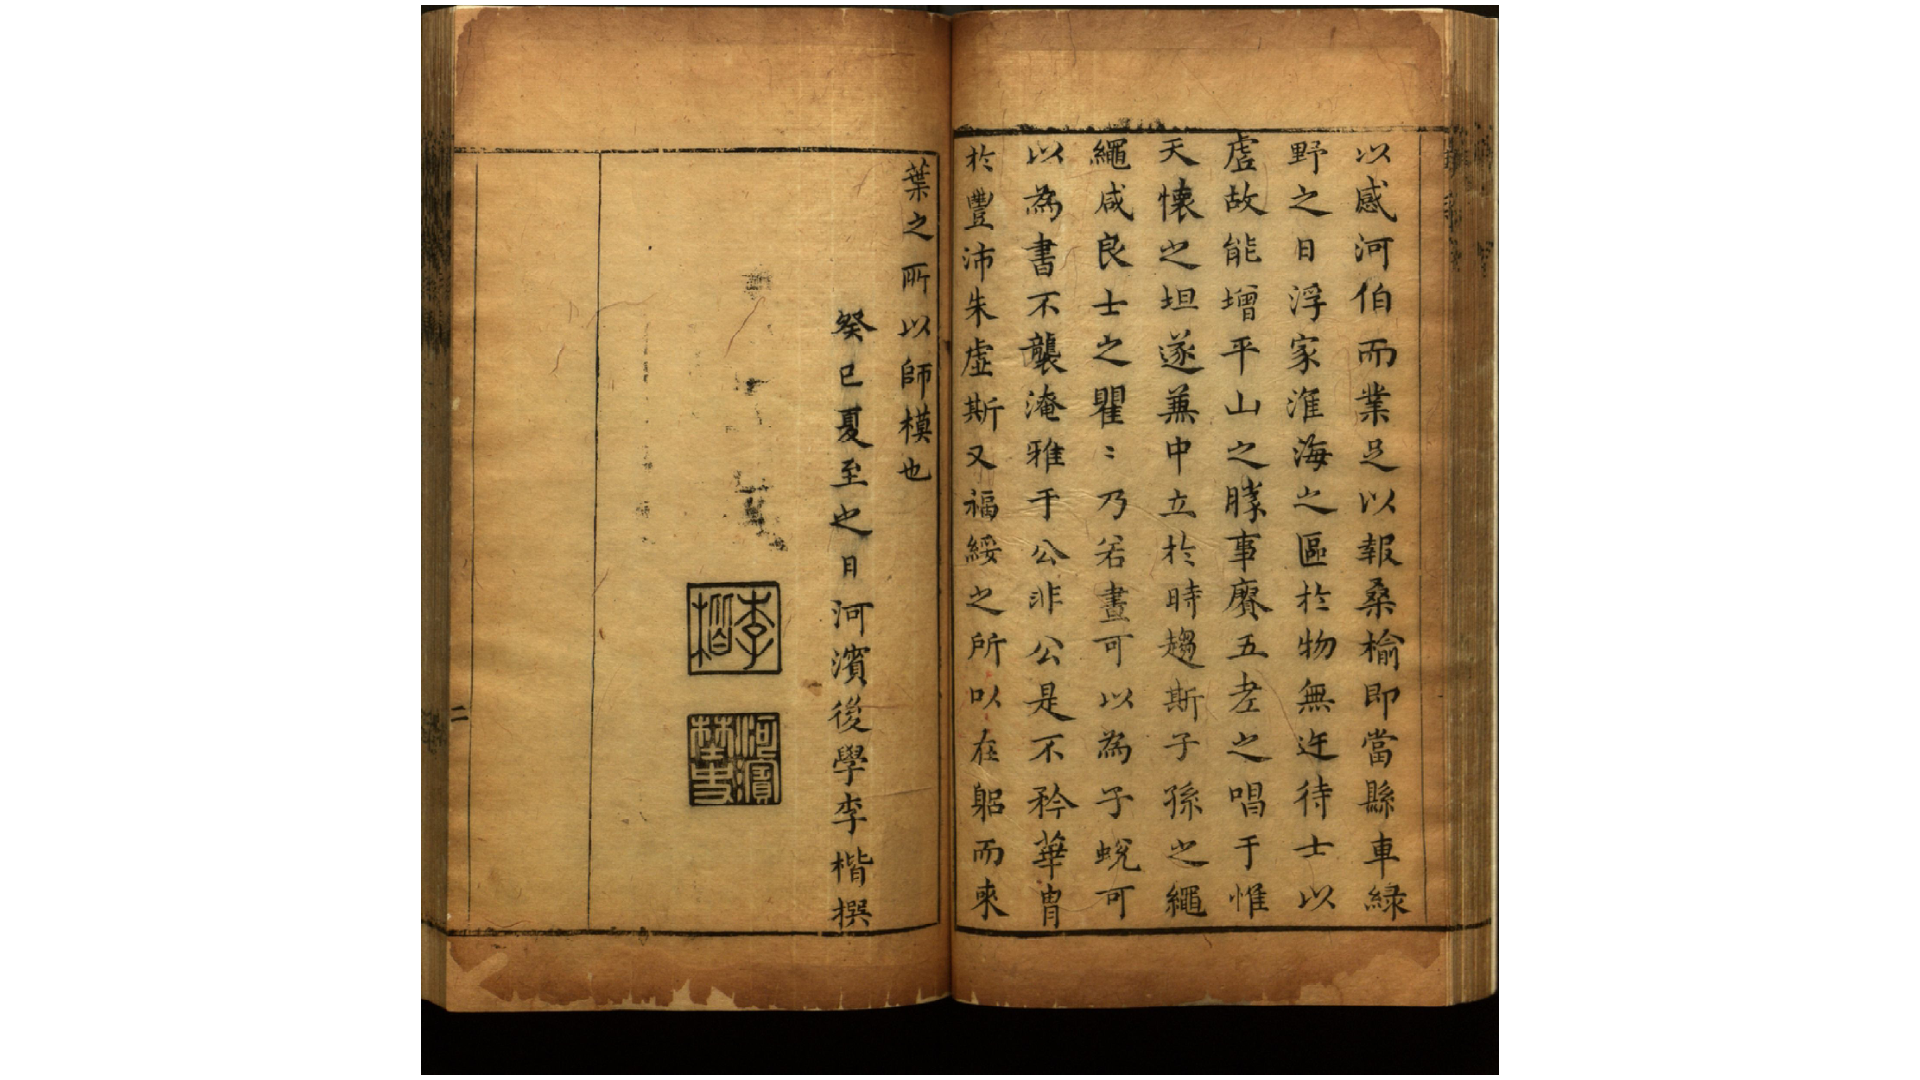 以感河伯而業足以報桑榆即當縣車綠
野之日浮家淮海之區於物無迕待士以
虛故能增平山之勝事賡五君之唱于惟
天懷之坦遂兼中立於時趨斯子孫之繩
繩咸良士之瞿〻乃若晝可以為子蛻可
以為書不襲淹雅于公非公是不矜華胄
於豐沛朱虛斯又福綏之所以在躬而來
葉之所以師模也
癸巳夏至之日河濱後學李楷撰
李楷
河濱
二